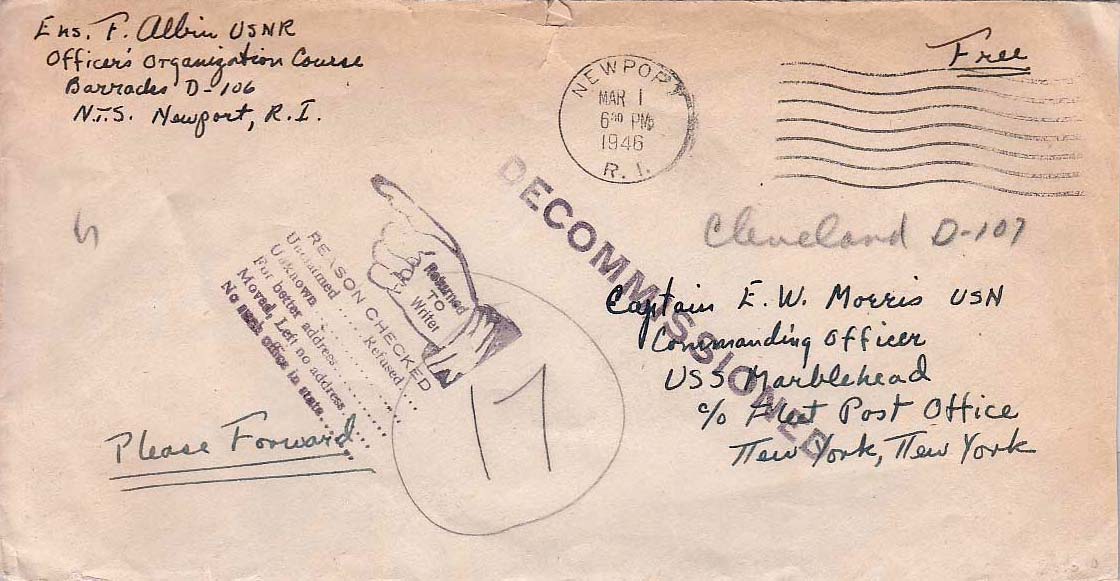 Ens. F. Albin USNR
Officer's Organization Course
Barracks D-106
N.T.S. Newport, R.I.
NEWPORT
MAR 1
6 30 PM
1946
R. I.
Free
DECOMMISSIONED
Cleveland D-107
Returned
TO
Writer
REASON CHECKED
Unclaimed ........ Refused ....
Unknown ........
For better address ........
Moved, Left no address ........
No such office in state ........
17
Captain E. W. Morris USN
Commanding Officer
USS Marblehead
c/o Fleet Post Office
New York, New York
Please Forward